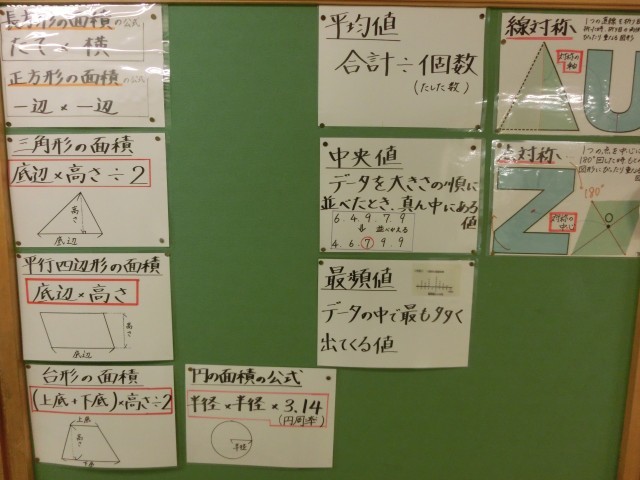 長方形の面積の公式
たて×横
正方形の面積の公式
一辺×一辺
三角形の面積
底辺×高さ÷2
高さ
底辺
平行四辺形の面積
底辺×高さ
高さ
底辺
台形の面積
(上底+下底)×高さ÷2
上底
高さ
下底
円の面積の公式
半径×半径×3.14
(円周率)
半径
平均値
合計÷個数
(たした数)
中央値
データを大きさの順に
並べたとき、真ん中にある
値
6.4.9.7.9
並べかえる
4.6.7 9.9
最頻値
データの中で最も多く
出てくる値
線対称
1つの直線を折り
対称の
軸
点対称
1つの点を中心に
180°回した時もと
図形にぴったり重なる図
180°
対称の
中心
O